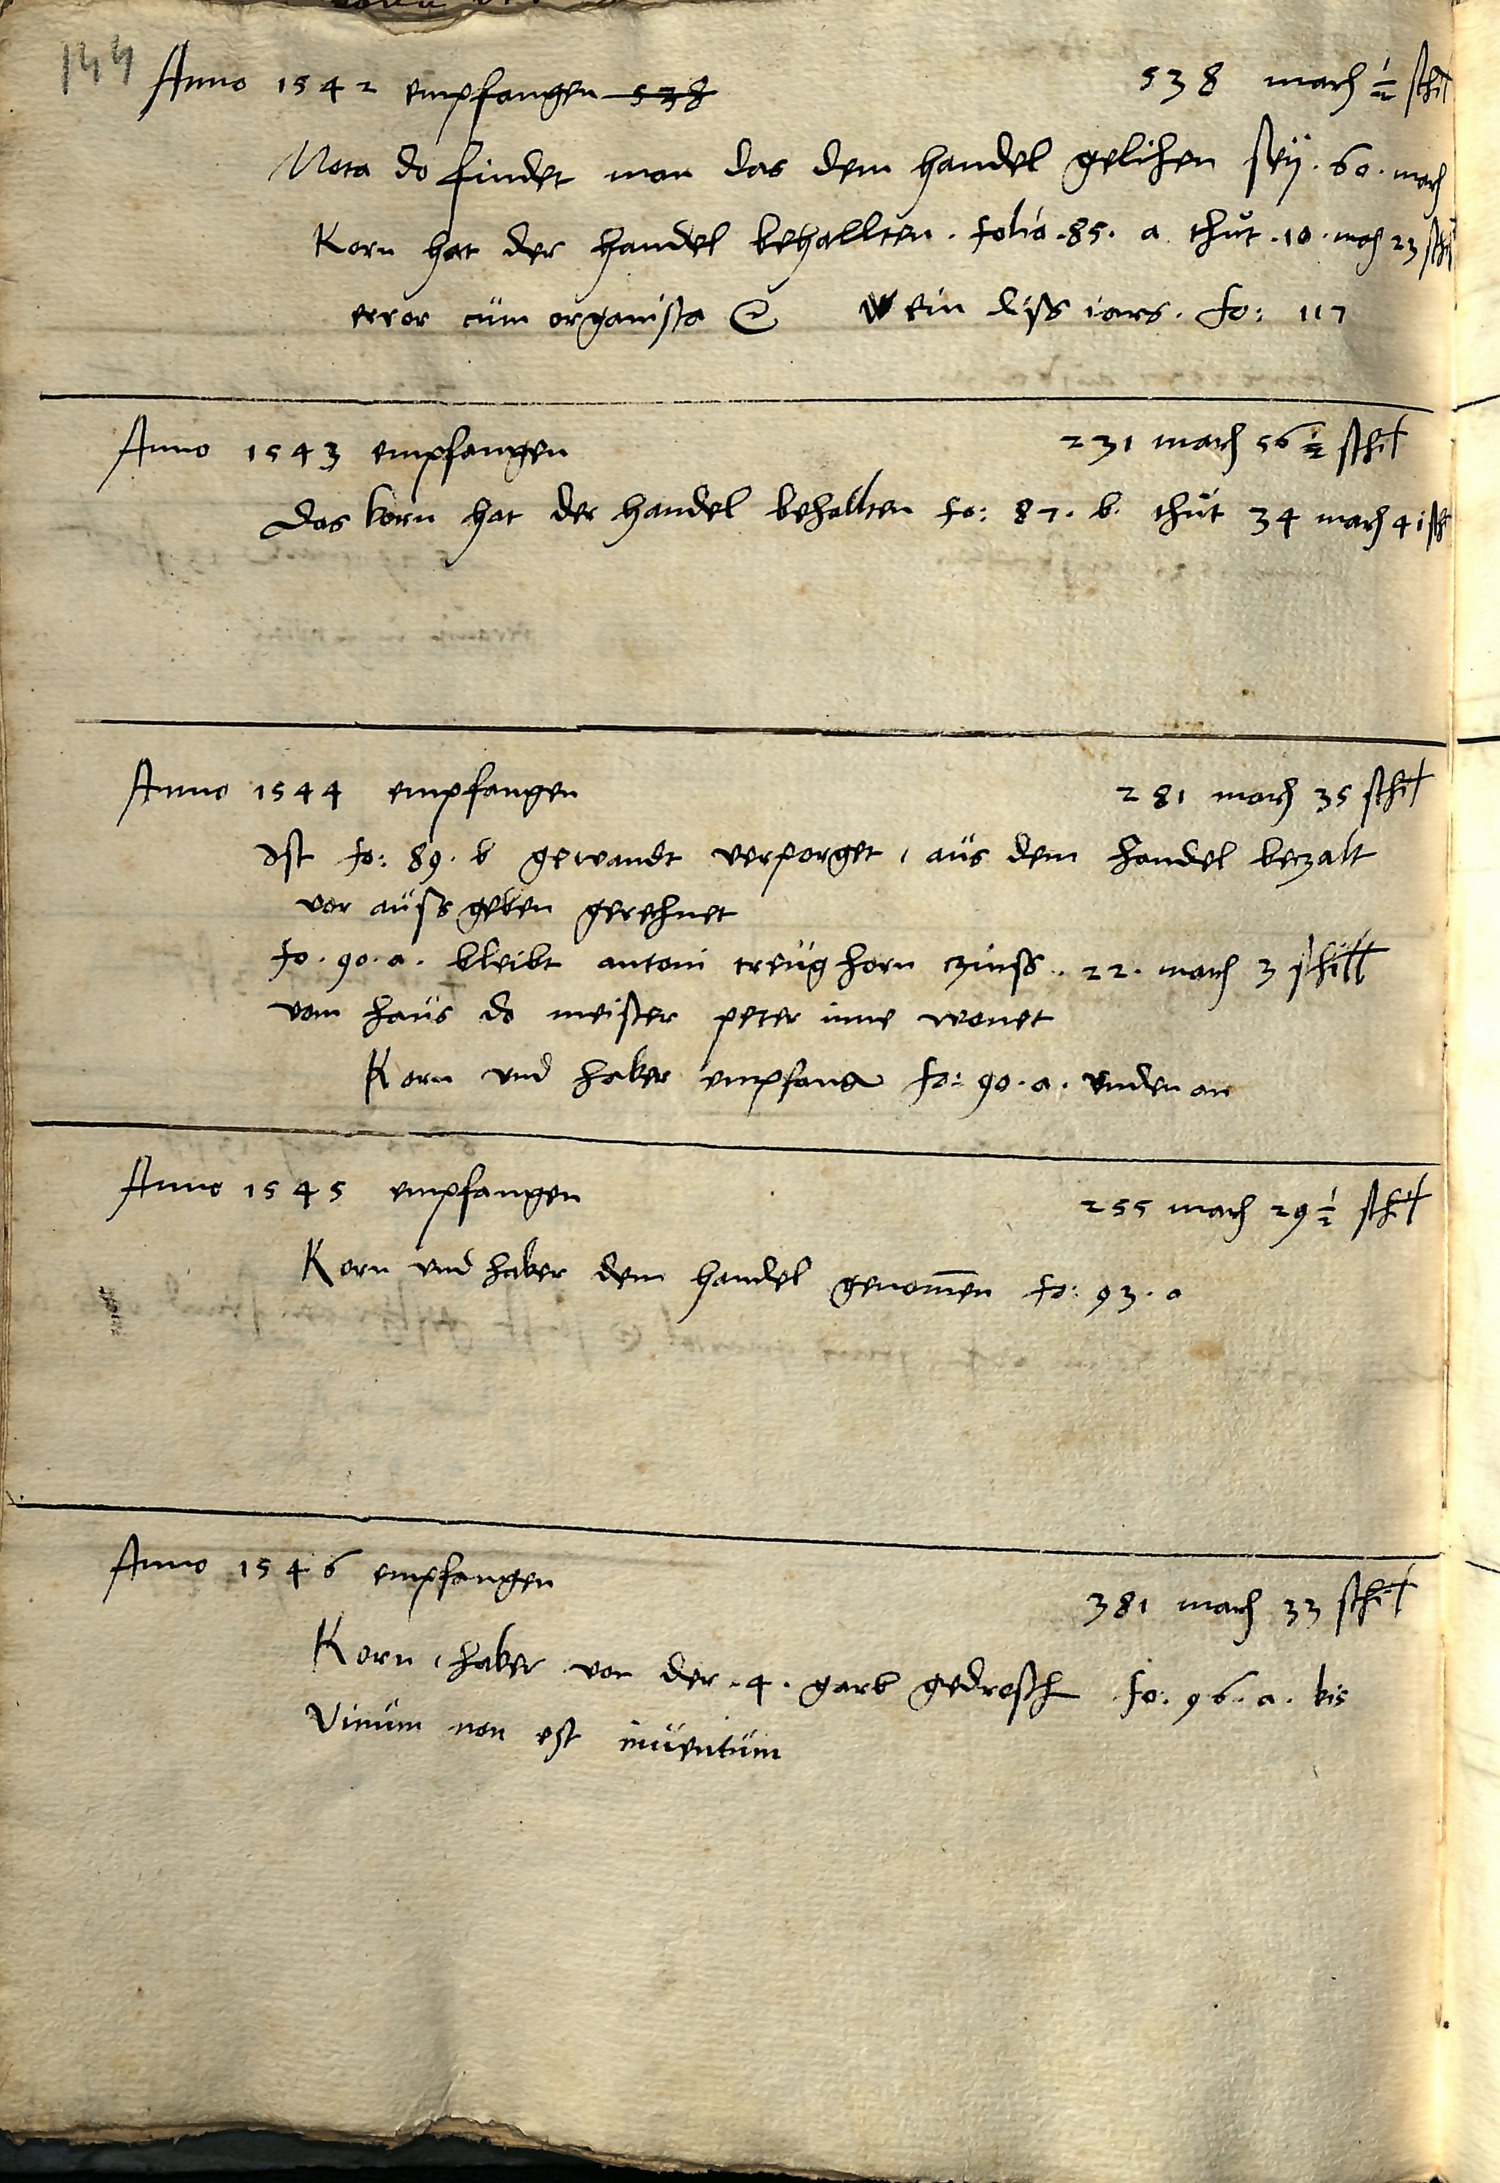 144
Anno 1542 empfangen 538 538 march ½ schil
Nota do findet man das dem handel gelihen seÿ . 60 . march
Korn hat der handel behallten . folio . 85 . a thut . 10 . march 23 schil
error cum organista & wein diss iars . fo: 117
Anno 1543 empfangen 231 march 56 ½ schil
Das korn hat der handel behallten fo: 87 . b . thut 34 march 41 sch
Anno 1544 empfangen 281 march 35 schil
Ist fo: 89 . b gewandt verporget , aus dem handel beczalt
vor aussgeben gerechnet
fo . 90 . a . bleibt antoni treughorn czinss .. 22 . march 3 schill
vom haus do meister peter inne wonet
Korn und haber empfang fo: 90 . a . unden an
Anno 1545 empfangen 255 march 29 ½ schil
Korn und haber dem handel genom̄en fo: 93 . a
Anno 1546 empfangen 381 march 33 schil
Korn , haber von der . 4 . garb gedrosch fo: 96 . a . bis
Vinum non est inuentum